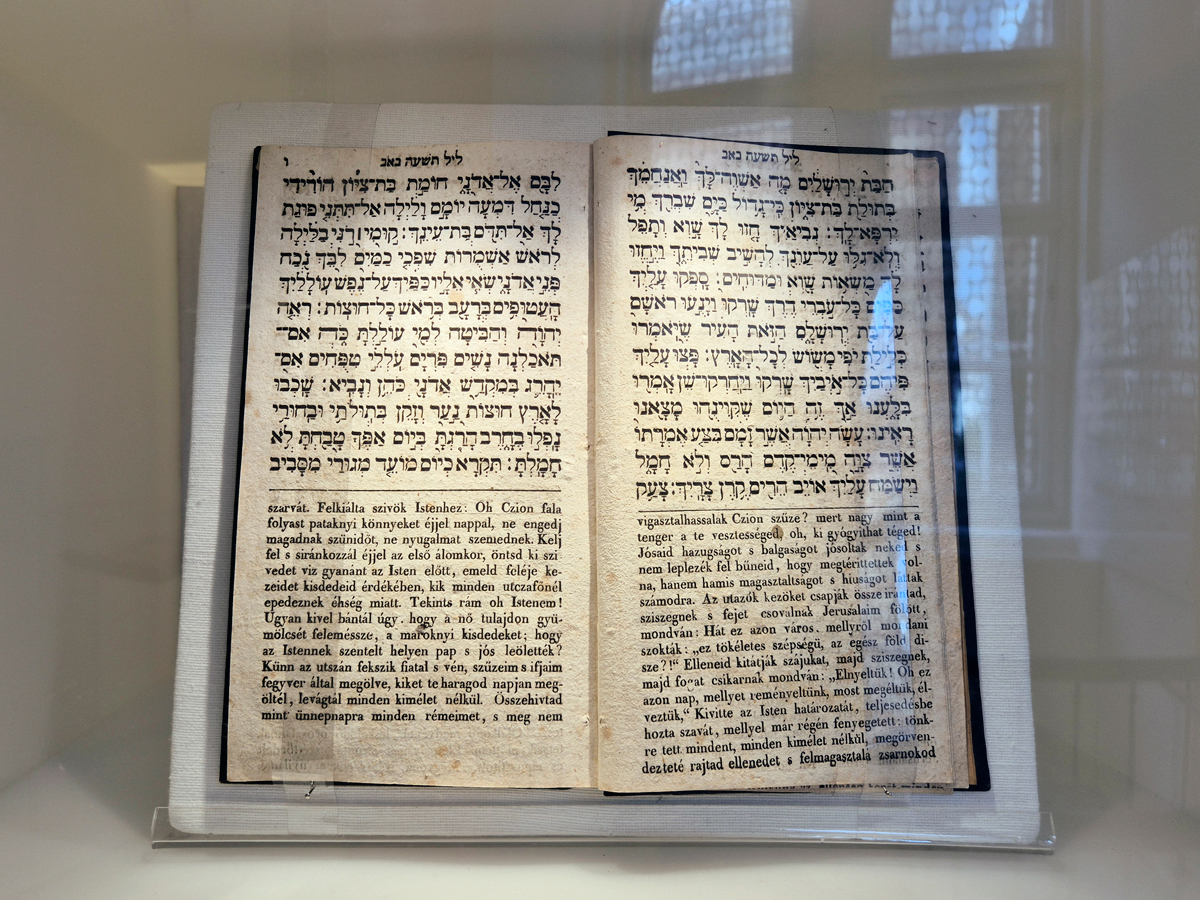 ליל תשעה באב
הַבַּת יְרוּשָׁלִַים מָה אַשְׁוֶה־לָּךְ וַאֲנַחֲמֵךְ
בְּתוּלַת בַּת־צִיּוֹן כִּי־גָדוֹל כַּיָּם שִׁבְרֵךְ מִי
יִרְפָּא־לָךְ: נְבִיאַיִךְ חָזוּ לָךְ שָׁוְא וְתָפֵל
וְלֹא־גִלּוּ עַל־עֲוֹנֵךְ לְהָשִׁיב שְׁבִיתֵךְ וַיֶּחֱזוּ
לָךְ מַשְׂאוֹת שָׁוְא וּמַדּוּחִים: סָפְקוּ עָלַיִךְ
כַּפַּיִם כָּל־עֹבְרֵי דֶרֶךְ שָׁרְקוּ וַיָּנִעוּ רֹאשָׁם
עַל־בַּת יְרוּשָׁלִָם הֲזֹאת הָעִיר שֶׁיֹּאמְרוּ
כְּלִילַת יֹפִי מָשׂוֹשׂ לְכָל־הָאָרֶץ: פָּצוּ עָלַיִךְ
פִּיהֶם כָּל־אֹיְבַיִךְ שָׁרְקוּ וַיַּחַרְקוּ־שֵׁן אָמְרוּ
בִּלָּעְנוּ אַךְ זֶה הַיּוֹם שֶׁקִּוִּינֻהוּ מָצָאנוּ
רָאִינוּ: עָשָׂה יְהוָֹה אֲשֶׁר זָמָם בִּצַּע אֶמְרָתוֹ
אֲשֶׁר צִוָּה מִימֵי־קֶדֶם הָרַס וְלֹא חָמָל
וַיְשַׂמַּח עָלַיִךְ אוֹיֵב הֵרִים קֶרֶן צָרָיִךְ: צָעַק
vigasztalhassalak Czion szüze? mert nagy mint a
tenger a te vesztességed, oh, ki gyógyíthat téged!
Jósaid hazugságot s balgaságot jósoltak neked s
nem leplezék fel bűneid, hogy megtérittettek vol-
na, hanem hamis magasztaltságot s hiuságot láttak
számodra. Az utazók kezöket csapják össze irántad,
sziszegnek s fejet csoválnak Jerusalaim fölött,
mondván: Hát ez azon város. mellyről mondani
szokták: „ez tökéletes szépségü, az egész föld di-
sze?!“ Elleneid kitátják szájukat, majd sziszegnek,
majd fogat csikarnak mondván: „Elnyeltük! Oh ez
azon nap, mellyet reményeltünk, most megéltük, él-
veztük,“ Kivitte az Isten határozatát, teljesedésbe
hozta szavát, mellyel már régén fenyegetett: tönk-
re tett mindent, minden kimélet nélkül, megörven-
dezteté rajtad ellenedet s felmagasztalá zsarnokod
ליל תשעה באב
ו
לִבָּם אֶל־אֲדֹנָי חוֹמַת בַּת־צִיּוֹן הוֹרִידִי
כַנַּחַל דִּמְעָה יוֹמָם וָלַיְלָה אַל־תִּתְּנִי פוּגַת
לָךְ אַל־תִּדֹּם בַּת־עֵינֵךְ: קוּמִי רֹנִּי בַלַּיְלָה
לְרֹאשׁ אַשְׁמֻרוֹת שִׁפְכִי כַמַּיִם לִבֵּךְ נֹכַח
פְּנֵי אֲדֹנָי שְׂאִי אֵלָיו כַּפַּיִךְ עַל־נֶפֶשׁ עוֹלָלַיִךְ
הָעֲטוּפִים בְּרָעָב בְּרֹאשׁ כָּל־חוּצוֹת: רְאֵה
יְהוָֹה וְהַבִּיטָה לְמִי עוֹלַלְתָּ כֹּה אִם־
תֹּאכַלְנָה נָשִׁים פִּרְיָם עֹלְלֵי טִפֻּחִים אִם־
יֵהָרֵג בְּמִקְדַּשׁ אֲדֹנָי כֹּהֵן וְנָבִיא: שָׁכְבוּ
לָאָרֶץ חוּצוֹת נַעַר וְזָקֵן בְּתוּלֹתַי וּבַחוּרַי
נָפְלוּ בֶחָרֶב הָרַגְתָּ בְּיוֹם אַפֶּךָ טָבַחְתָּ לֹא
חָמָלְתָּ: תִּקְרָא כְיוֹם מוֹעֵד מְגוּרַי מִסָּבִיב
szarvát. Felkiálta szivök Istenhez: Oh Czion fala
folyast pataknyi könnyeket éjjel nappal, ne engedj
magadnak szünidőt, ne nyugalmat szemednek. Kelj
fel s siránkozzál éjjel az első álomkor, öntsd ki szi
vedet viz gyanánt az Isten előtt, emeld feléje ke-
zeidet kisdedeid érdekében, kik minden utczafőnél
epedeznek éhség miatt. Tekints rám oh Istenem!
Ugyan kivel bántál úgy. hogy a nő tulajdon gyü-
mölcsét felemészsze, a maroknyi kisdedeket; hogy
az Istennek szentelt helyen pap s jós leölették?
Künn az utszán fekszik fiatal s vén, szüzeim s ifjaim
fegyver által megölve, kiket te haragod napjan meg-
öltél, levágtál minden kimélet nélkül. Összehivtad
mint ünnepnapra minden rémeimet, s meg nem